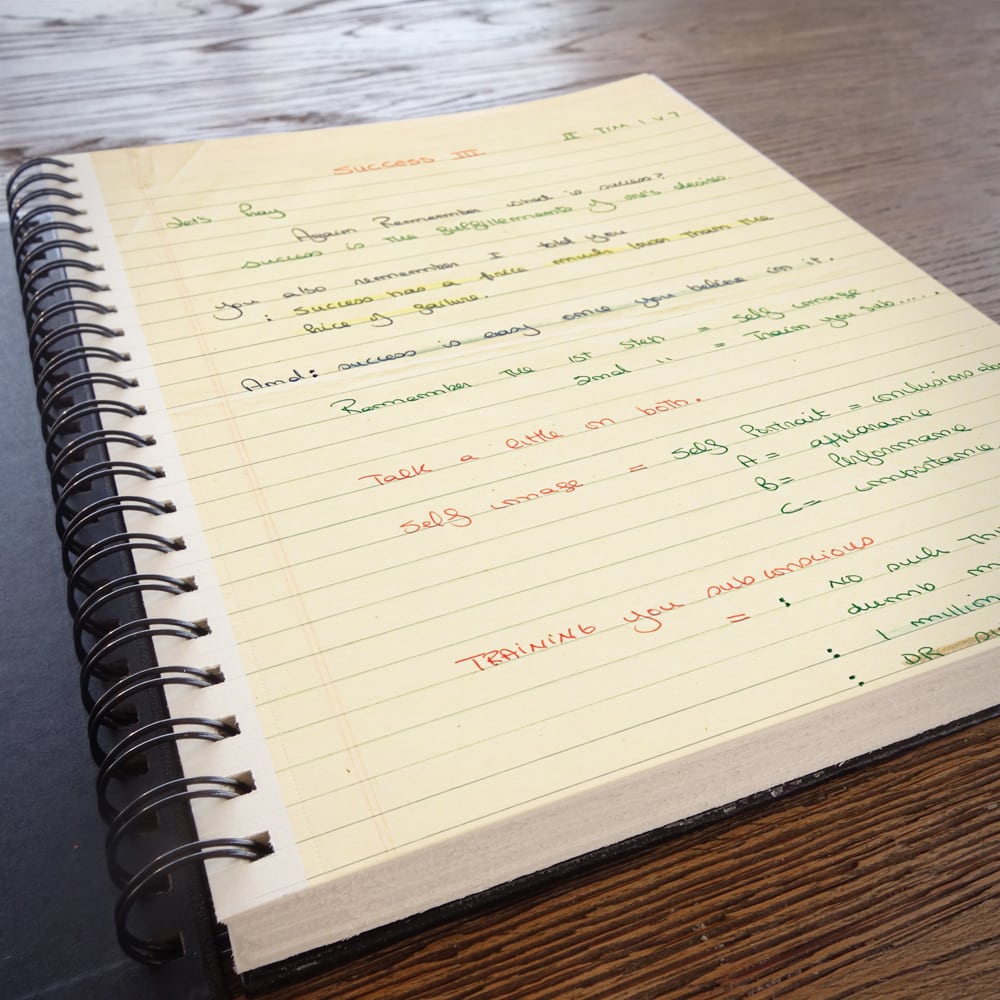 Success III
II TIM 1 v 7
Let's Pray
Again Remember what is success?
success is the fulfillements of one's desires.
You also remember I told you
: success has a price much lower than the
Price of failure.
And: success is easy once you believe in it.
Remember the 1st step = self image
2nd " = Train you sub.....
Talk a little on both.
self image = self Portrait = conclusions
A = appearance
B= Performance
C= importance
TRAINING you subconscious
= : NO such
dumb
: 1 million
: DR